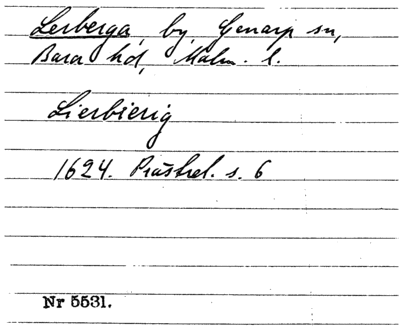 Lerberga, by, Genarp sn,
Bara hd, Malm. l.
Lierbierig
1624. Prästrel. s. 6
Nr 5531.